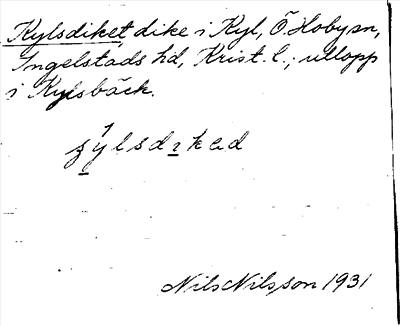 Kylsdiket, dike i Kyl, Ö. Hoby sn,
Ingelstads hd, Krist. l.; utlopp
i Kylsbäck.
Nils Nilsson 1931